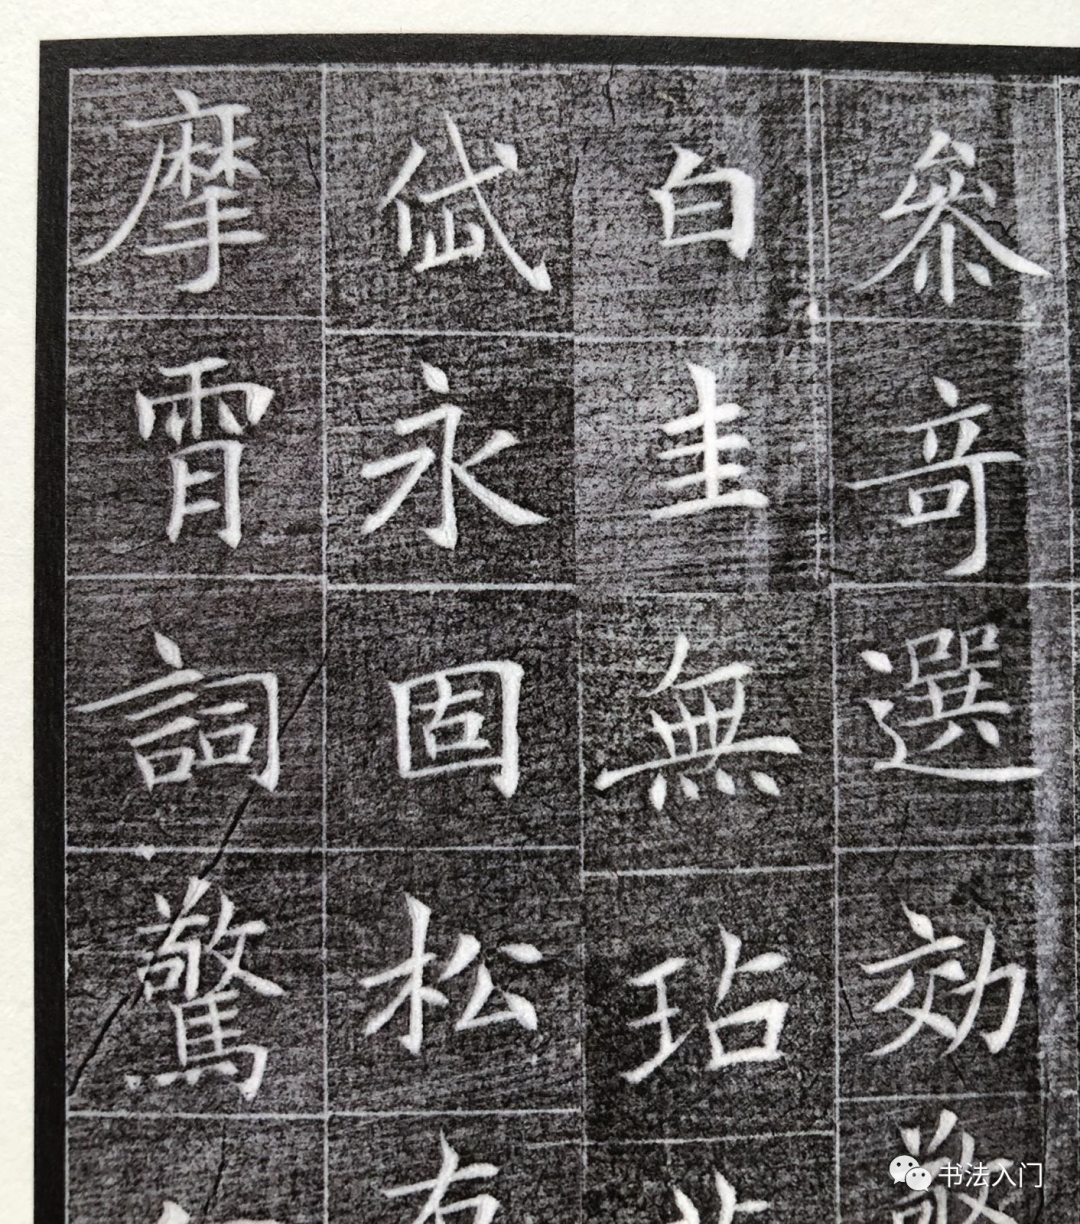 參竒選効
白圭無玷
岱永固松
摩霄詞驚
书法入门